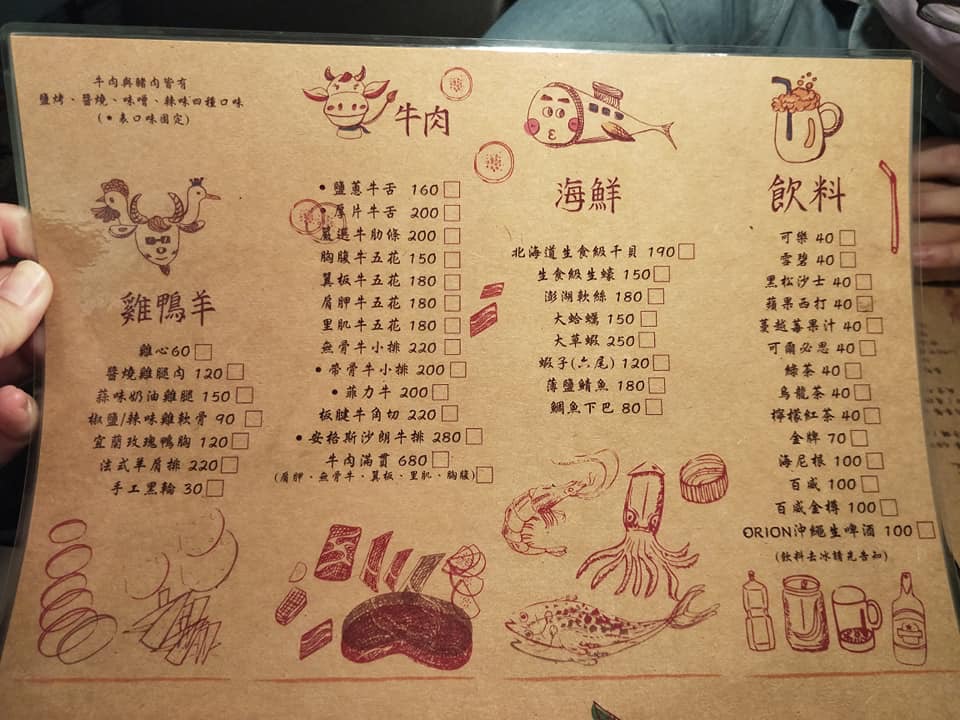 牛肉與豬肉皆有
鹽烤、醬燒、味噌、辣味四種口味
(•表口味固定)
雞鴨羊
雞心60
醬燒雞腿肉 120
蒜味奶油雞腿 150
椒鹽/辣味雞軟骨 90
宜蘭玫瑰鴨胸 120
法式羊肩排 220
手工黑輪 30
牛肉
•鹽蔥牛舌 160
•厚片牛舌 200
嚴選牛肋條 200
胸腹牛五花 150
翼板牛五花 180
肩胛牛五花 180
里肌牛五花 180
無骨牛小排 220
•帶骨牛小排 200
•菲力牛 200
板腱牛角切 220
•安格斯沙朗牛排 280
牛肉滿貫 680
(肩胛、無骨牛、翼板、里肌、胸腹)
海鮮
北海道生食級干貝 190
生食級生蠔 150
澎湖軟絲 180
大蛤蠣 150
大草蝦 250
蝦子(六尾) 120
薄鹽鯖魚 180
鯛魚下巴 80
飲料
可樂 40
雪碧 40
黑松沙士 40
蘋果西打 40
蔓越莓果汁 40
可爾必思 40
綠茶 40
烏龍茶 40
檸檬紅茶 40
金牌 70
海尼根 100
百威 100
百威金樽 100
ORION沖繩生啤酒 100
(飲料去冰請先告知)